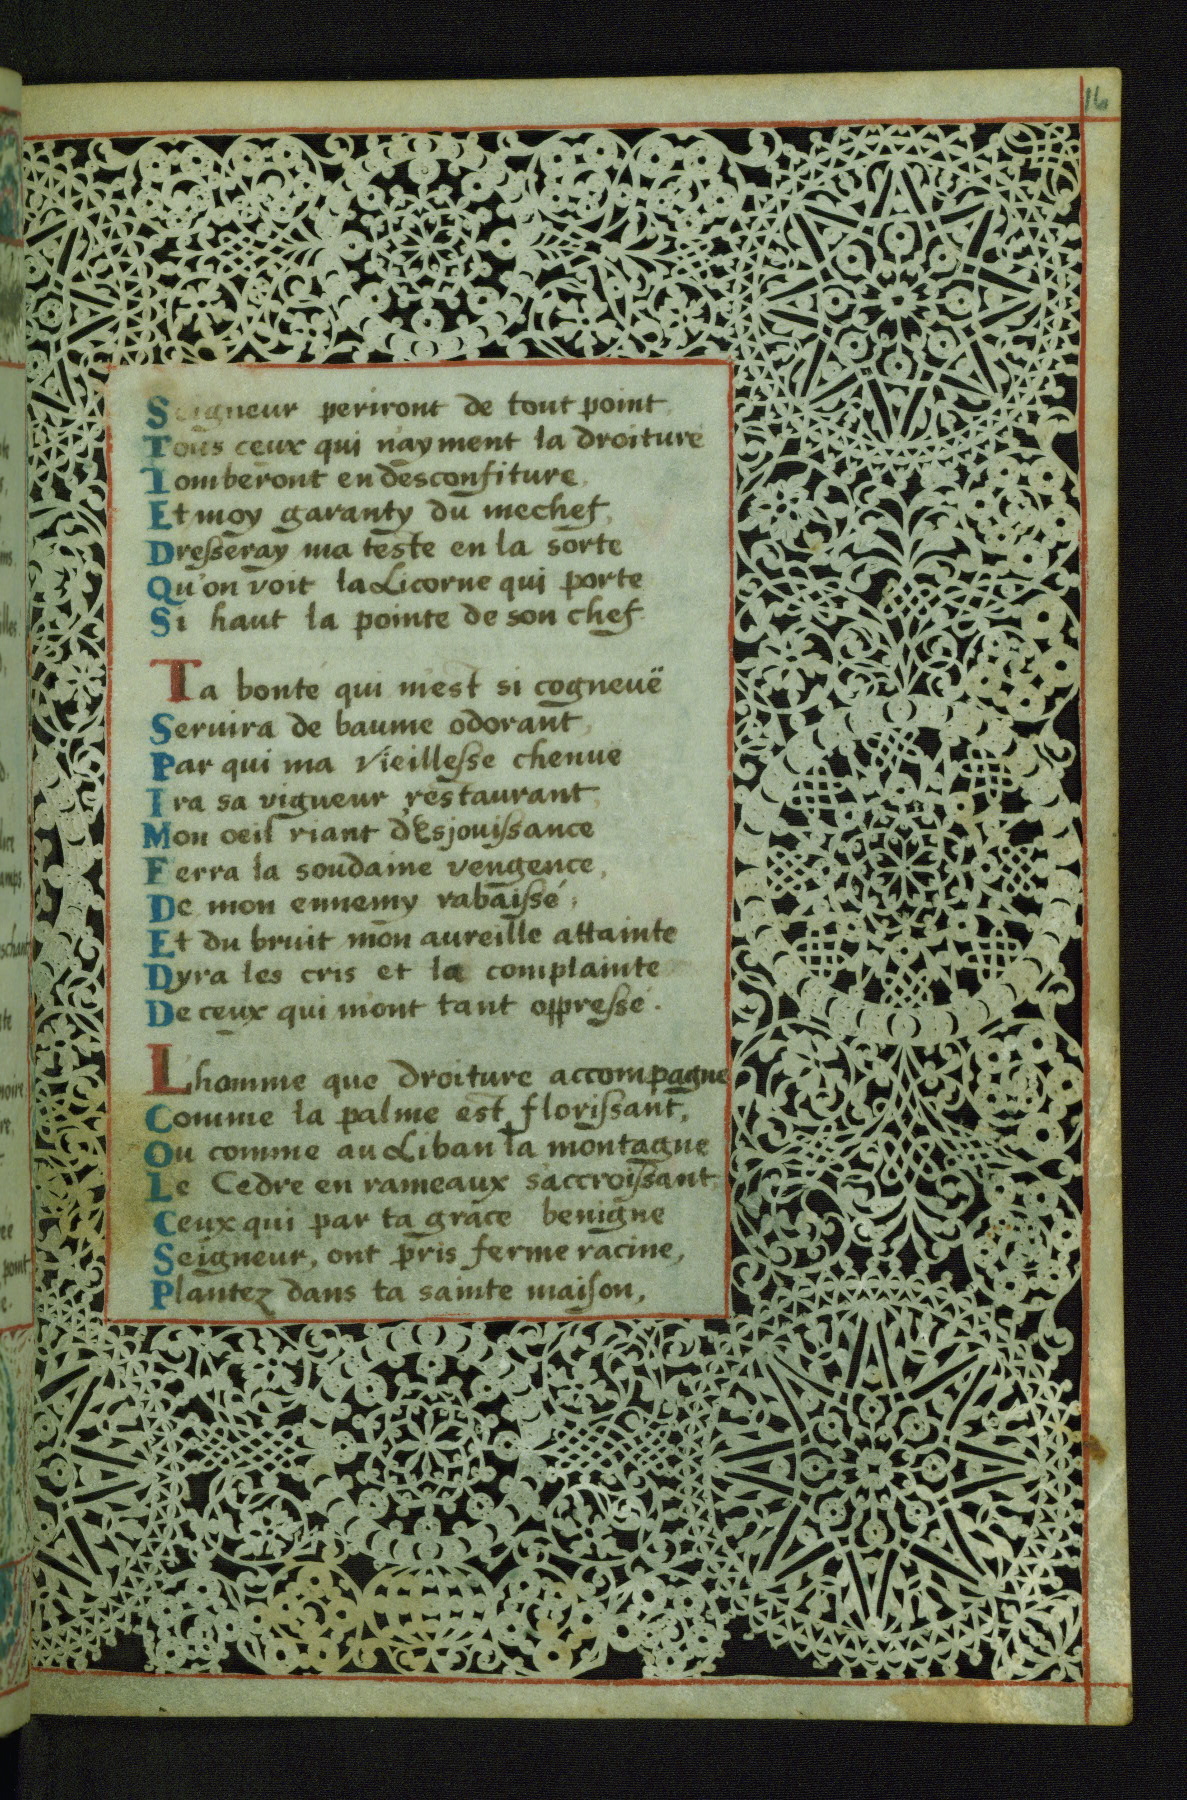 16
Seigneur periront de tout point,
Tous ceux qui n'ayment la droiture
Tomberont en desconfiture,
Et moy garanty du mechef,
Dresseray ma teste en la sorte
Qu'on voit la Licorne qui porte
Si haut la pointe de son chef.
Ta bonté qui m'est si cogneuë
Seruira de baume odorant,
Par qui ma vieillesse chenue
Ira sa vigueur restaurant,
Mon oeil riant d'Esjouissance
Ferra la soudaine vengence,
De mon ennemy rabaissé,
Et du bruit mon aureille attainte
Dyra les cris et la complainte
De ceux qui m'ont tant oppressé.
L'homme que droiture accompagne
Comme la palme est florissant,
Ou comme au Liban la montagne
Le Cedre en rameaux s'accroissant,
Ceux qui par ta grace benigne
Seigneur, ont pris ferme racine,
Plantez dans ta sainte maison,